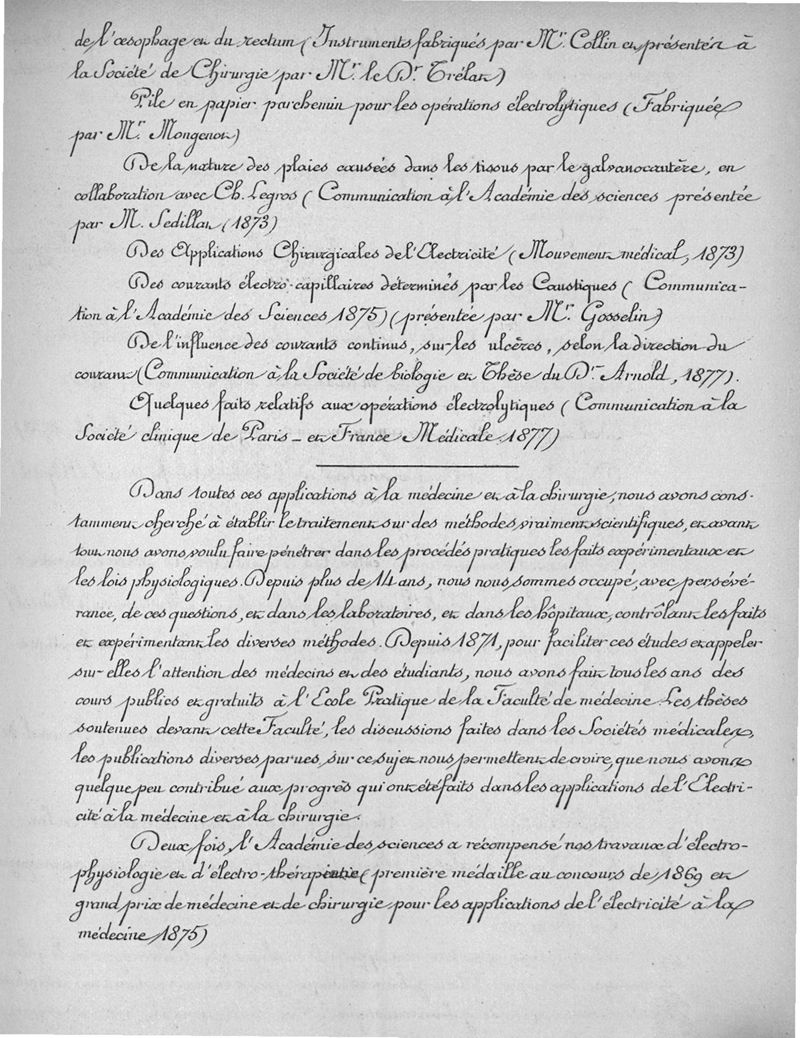 de l'œsophage et du rectum (Instruments fabriqués par Mr. Collin et présentés à
la Société de Chirurgie par Mr. le Dr. Trélat)
Pile en papier parchemin pour les opérations électrolytiques (Fabriquée
par Mr. Mongenot)
De la nature des plaies causées dans les tissus par le galvanocautère, en
collaboration avec Ch. Legros (Communication à l'Académie des sciences présentée
par M. Sedillot (1873)
Des Applications Chirurgicales de l'Electricité (Mouvement médical, 1873)
Des courants électro-capillaires déterminés par les Caustiques (Communica-
tion à l'Académie des Sciences 1875) (présentée par Mr. Gosselin)
De l'influence des courants continus, sur les ulcères, selon la direction du
courant (Communication à la Société de biologie et Thèse du Dr. Arnold, 1877).
Quelques faits relatifs aux opérations électrolytiques (Communication à la
Société clinique de Paris - et France Médicale 1877)
Dans toutes ces applications à la médecine et à la chirurgie, nous avons cons-
tamment cherché à établir le traitement sur des méthodes vraiment scientifiques, et avant
tout nous avons voulu faire pénétrer dans les procédés pratiques les faits expérimentaux et
les lois physiologiques. Depuis plus de 14 ans, nous nous sommes occupé, avec persévé-
rance, de ces questions, et dans les laboratoires, et dans les hôpitaux, contrôlant les faits
et expérimentant les diverses méthodes. Depuis 1871, pour faciliter ces études et appeler
sur elles l'attention des médecins et des étudiants, nous avons fait tous les ans des
cours publics et gratuits à l'Ecole Pratique de la Faculté de médecine Les thèses
soutenues devant cette Faculté, les discussions faites dans les Sociétés médicales,
les publications diverses parues, sur ce sujet nous permettent de croire, que nous avons
quelque peu contribué aux progrès qui ont été faits dans les applications de l'Electri-
cité à la médecine et à la chirurgie.
Deux fois, l'Académie des sciences a récompensé nos travaux d'électro-
physiologie et d'électro-thérapie (première médaille au concours de 1869 et
grand prix de médecine et de chirurgie pour les applications de l'électricité à la
médecine 1875)